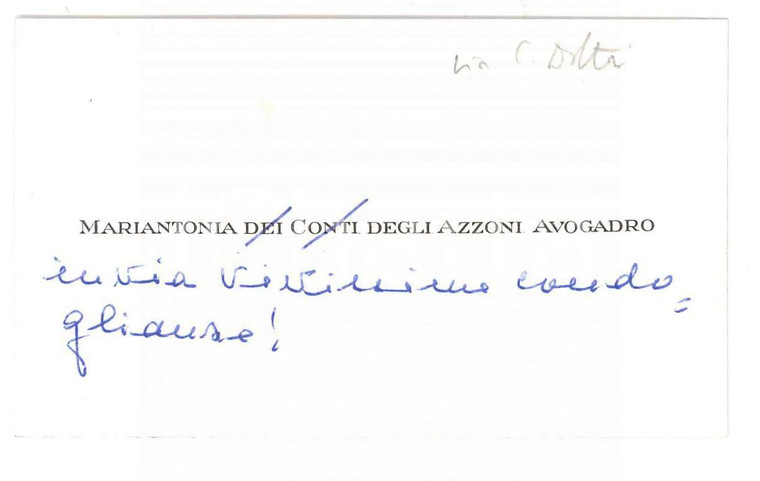 via C.
MARIANTONIA DEI CONTI DEGLI AZZONI AVOGADRO
invia vivissime condo=
glianze!